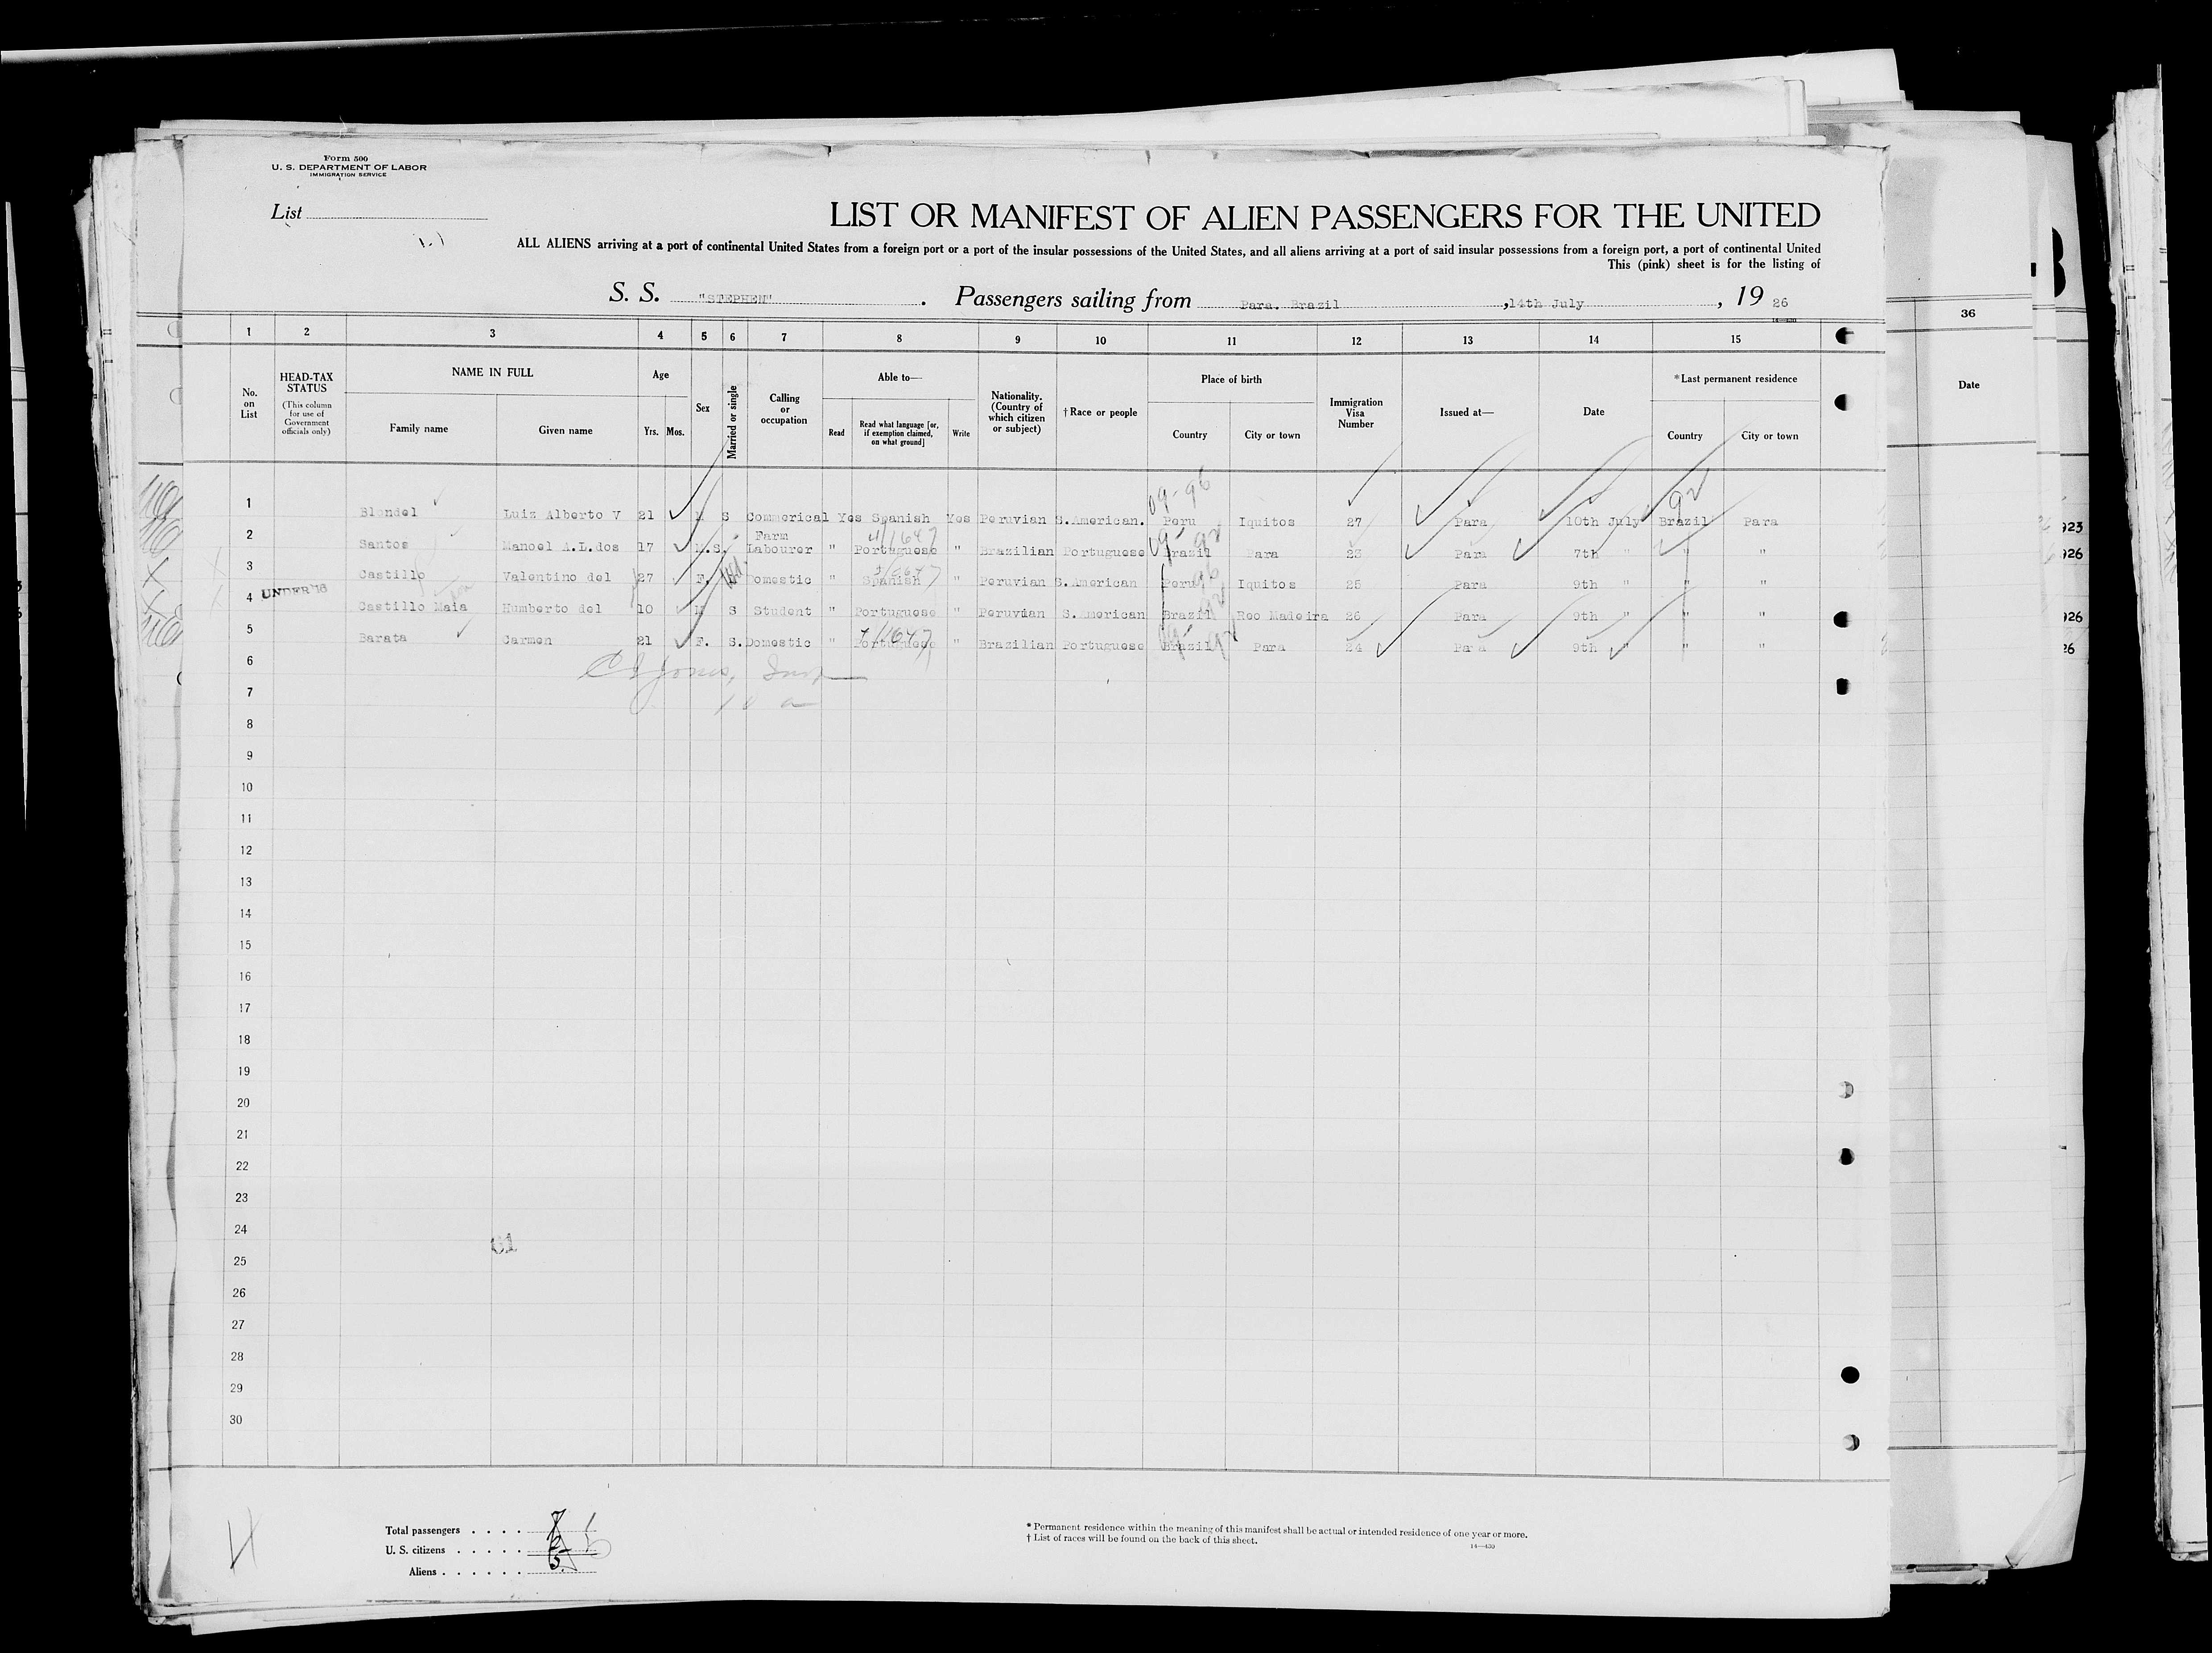 Form 500
U. S. DEPARTMENT OF LABOR
IMMIGRATION SERVICE
List
LIST OR MANIFEST OF ALIEN PASSENGERS FOR THE UNITED
ALL ALIENS arriving at a port of continental United States from a foreign port or a port of the insular possessions of the United States, and all aliens arriving at a port of said insular possessions from a foreign port, a port of continental United
This (pink) sheet is for the listing of
S. S. "STEPHEN". Passengers sailing from Para. Brazil, 14th July, 19 26
1 2 3 4 5 6 7 8 9 10 11 12 13 14 15
36
No. on List
HEAD-TAX STATUS (This column for use of Government officials only)
NAME IN FULL
Family name Given name
Age
Yrs. Mos.
Sex
Married or single
Calling or occupation
Able to—
Read
Read what language [or, if exemption claimed, on what ground]
Write
Nationality. (Country of which citizen or subject)
† Race or people
Place of birth
Country City or town
Immigration Visa Number
Issued at—
Date
* Last permanent residence
Country City or town
Date
09-96 92
1 Blondel Luiz Alberto V 21 M S Commerical Yes Spanish Yes Peruvian S.American. Peru Iquitos 27 Para 10th July Brazil Para
923
2 Santos Manoel A.L.dos 17 M.S. Farm Labourer " Portuguese " Brazilian Portuguese Brazil Para 23 Para 7th " " "
926
3 Castillo Valentino del 27 F. Domestic " Spanish " Peruvian S.American Peru Iquitos 25 Para 9th " " "
4 UNDER 16 Castillo Maia Humberto del 10 M S Student " Portuguese " Peruvian S.American Brazil Reo Madeira 26 Para 9th " " "
926
5 Barata Carmen 21 F. S. Domestic " Portuguese " Brazilian Portuguese Brazil Para 24 Para 9th " " "
26
6
7
8
9
10
11
12
13
14
15
16
17
18
19
20
21
22
23
24
25
26
27
28
29
30
Total passengers . . . .
U. S. citizens . . . . .
Aliens . . . . . .
* Permanent residence within the meaning of this manifest shall be actual or intended residence of one year or more.
† List of races will be found on the back of this sheet.
14—430